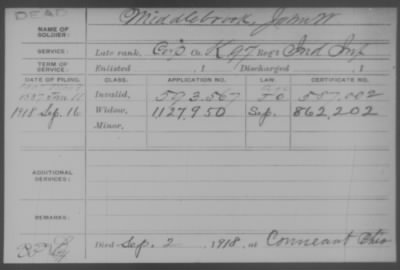 DEAD
NAME OF SOLDIER: Middlebrook, John W.
SERVICE: Late rank, Corp Co. K 97 Reg't Ind Inf
TERM OF SERVICE: Enlisted , 1 Discharged , 1
DATE OF FILING. CLASS. APPLICATION NO. LAW CERTIFICATE NO.
Invalid, 593.567 587.002
1918 Sep. 16 Widow, 1127,950 Sep. 862,202
Minor,
ADDITIONAL SERVICES:
REMARKS:
Died Sep. 2 , 1918, at Conneaut Ohio